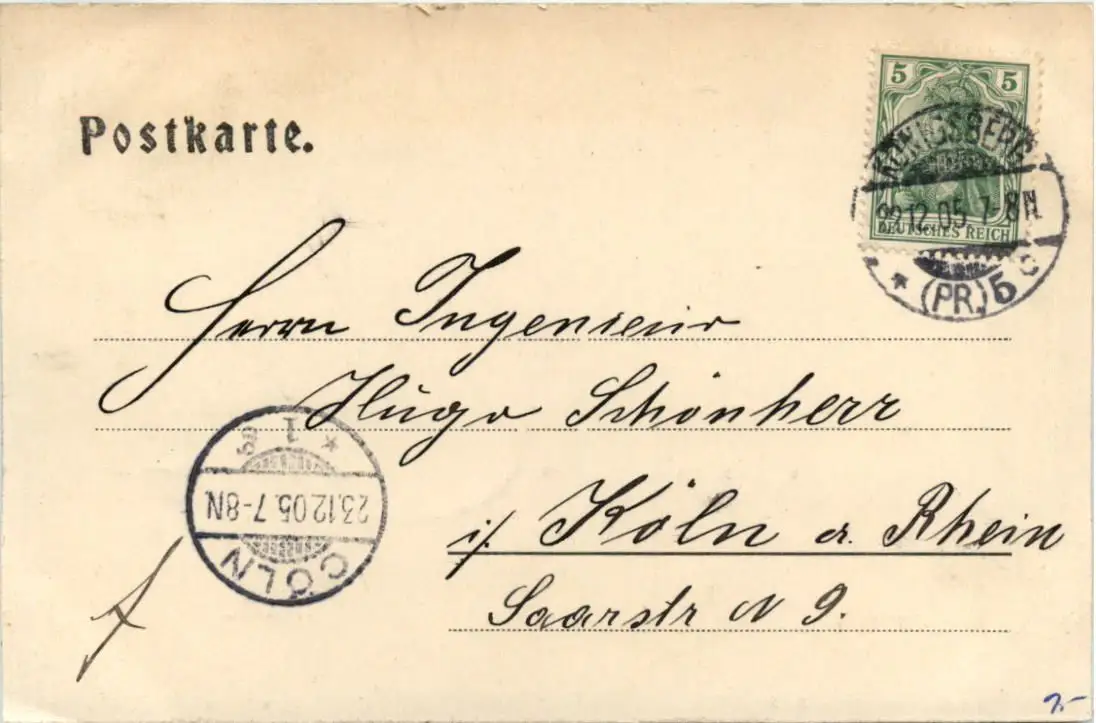 Postkarte.
5 5
DEUTSCHES REICH
KÖNIGSBERG
22.12.05. 7-8N.
* (PR.) 5 c
Herrn Ingenieur
Hugo Schönherr
i/. Köln a. Rhein
Saarstr N 9.
CÖLN
23.12.05. 7-8N.
* 1 g